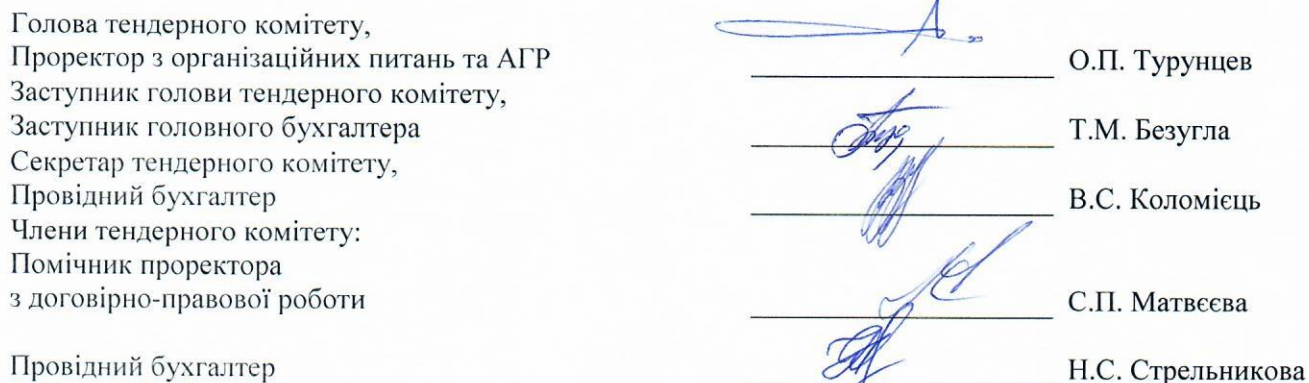 Голова тендерного комітету,
Проректор з організаційних питань та АГР О.П. Турунцев
Заступник голови тендерного комітету,
Заступник головного бухгалтера Т.М. Безугла
Секретар тендерного комітету,
Провідний бухгалтер В.С. Коломієць
Члени тендерного комітету:
Помічник проректора
з договірно-правової роботи С.П. Матвєєва
Провідний бухгалтер Н.С. Стрельникова